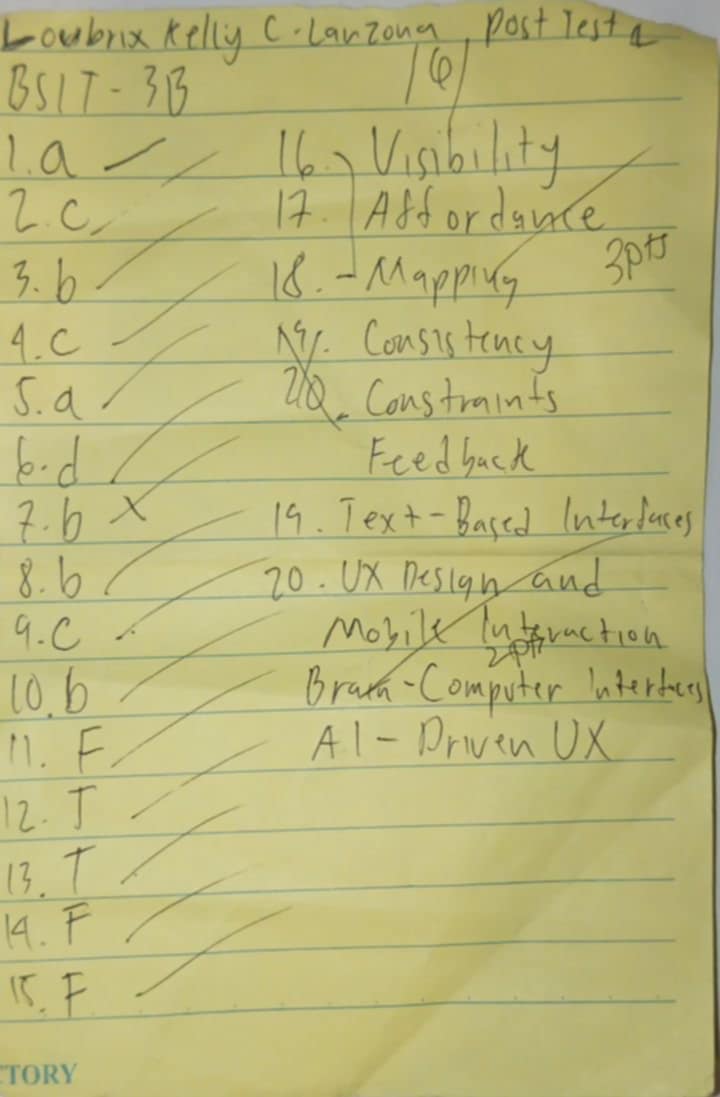 Loubrix Kelly C. Lanzona Post Test 1
BSIT - 3B
1. a
2. c
3. b
4. c
5. a
6. d
7. b X
8. b
9. C
10. b
11. F
12. T
13. T
14. F
15. F
16. Visibility
17. Affordance
18. - Mapping 3pts
19. Consistency
20. Constraints
Feedback
19. Text-Based Interfaces
20. UX Design and
Mobile Interaction
2pts
Brain-Computer Interfaces
AI - Driven UX
CTORY